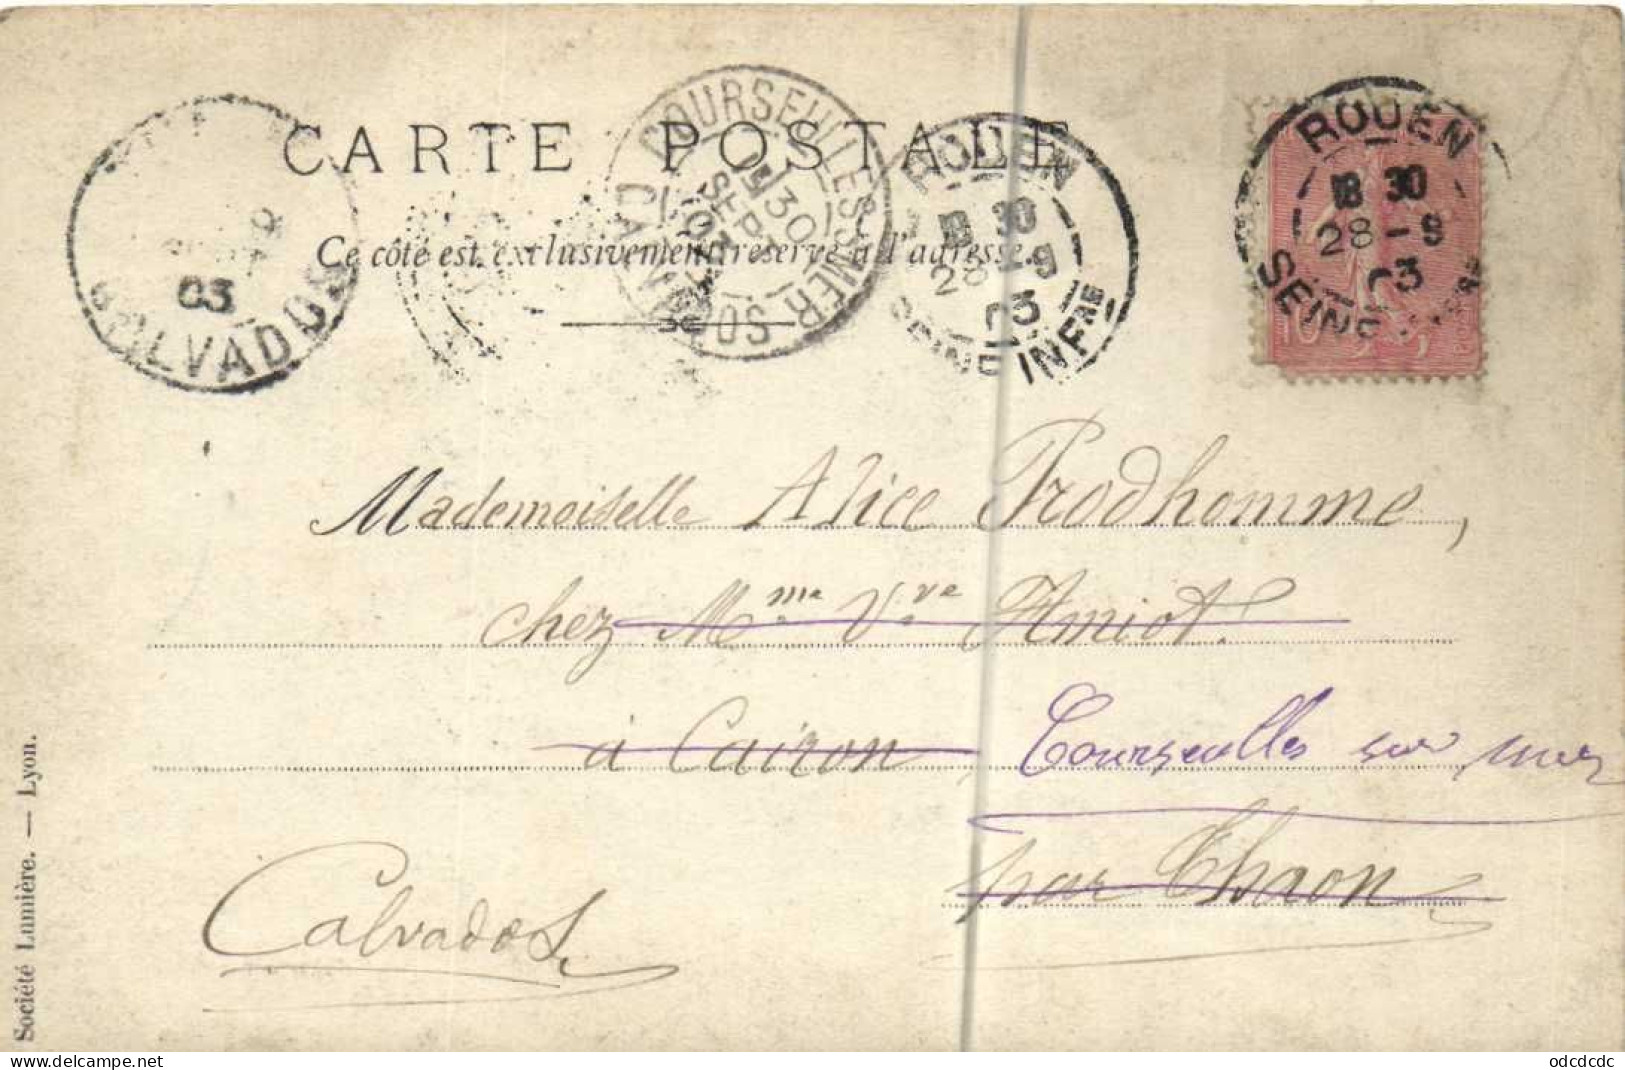 CARTE POSTALE
Ce côté est exclusivement réservé à l'adresse.
COURSEULLES S MER
CALVADOS
30
SEPT
03
CALVADOS
03
ROUEN
18 30
28 - 9
03
SEINE INFRE
ROUEN
18 30
28 - 9
03
SEINE
Mademoiselle Alice Prodhomme,
chez Mme Vve Amiot.
à Cairon, Courseulles sur mer
par Thaon
Calvados.
Société Lumière. — Lyon.
odcdcdc
delcampe.net